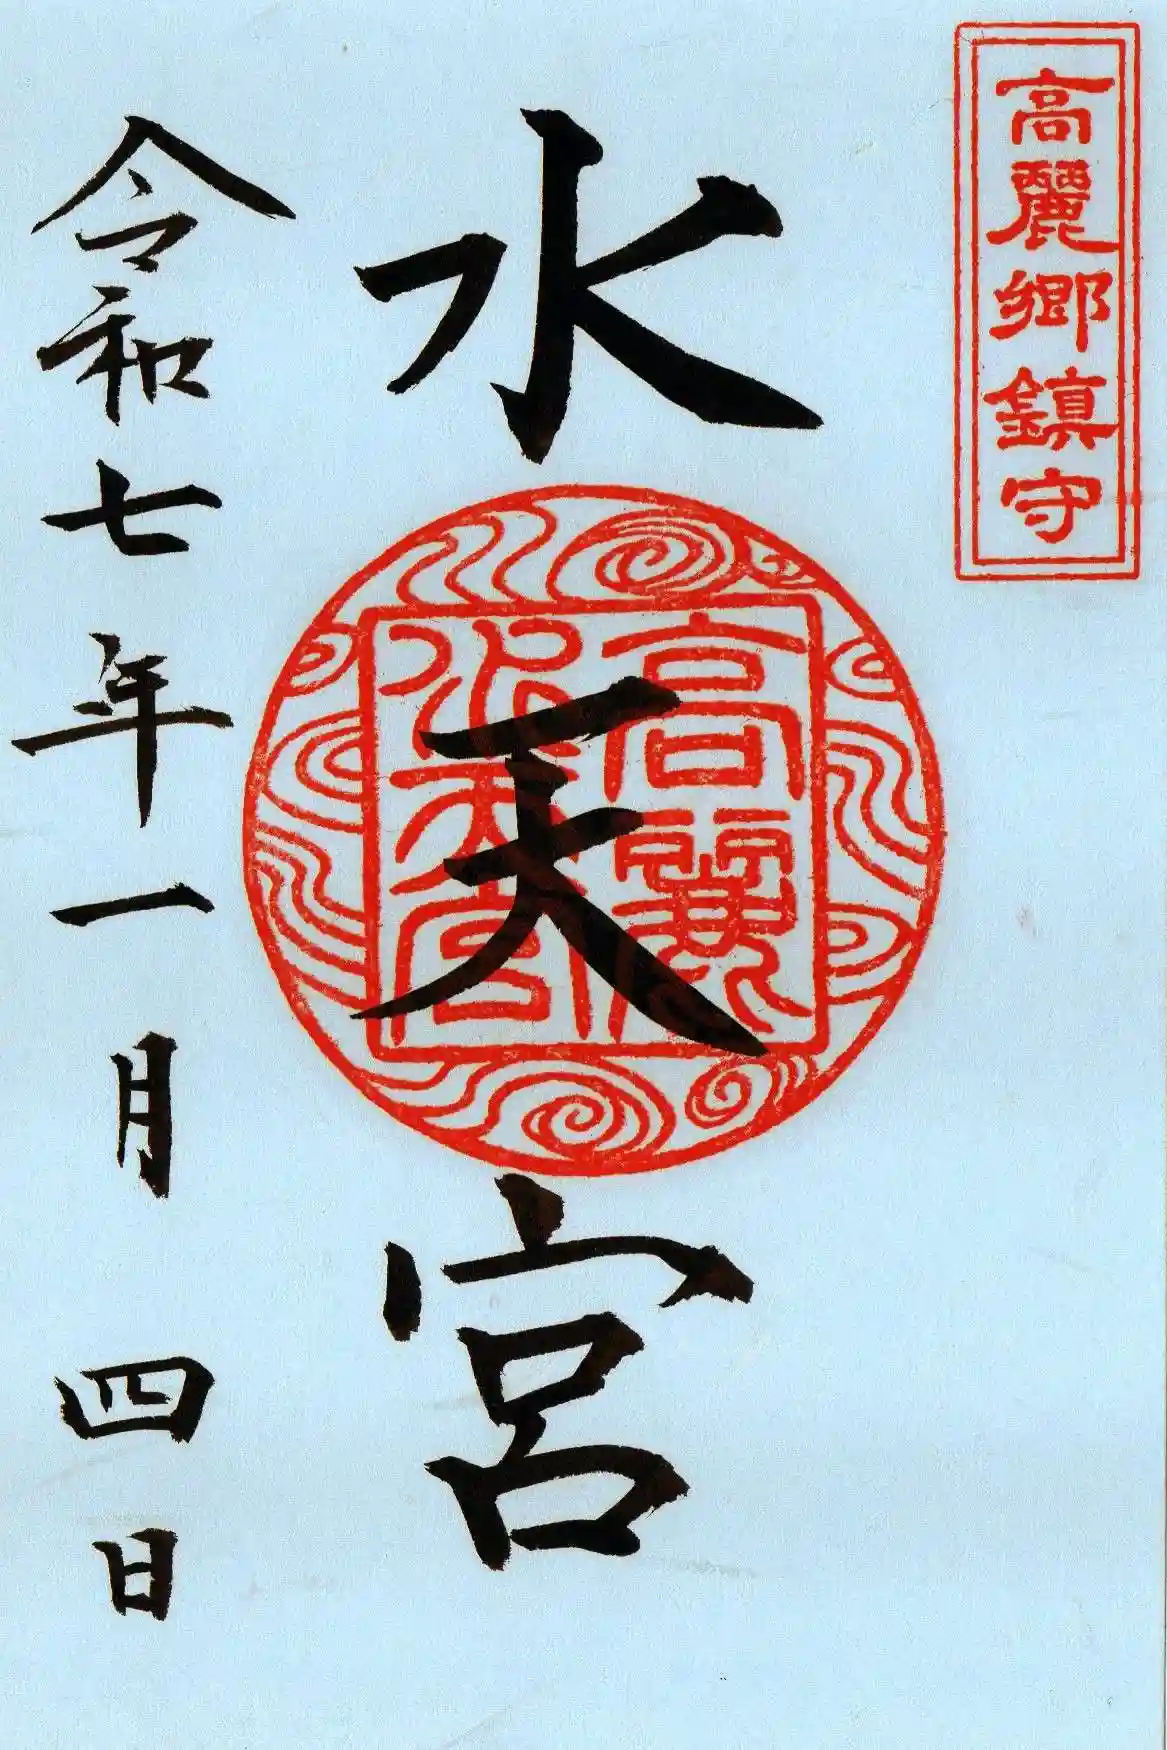 高麗郷鎮守
水天宮
高麗
水天宮
令和七年一月四日